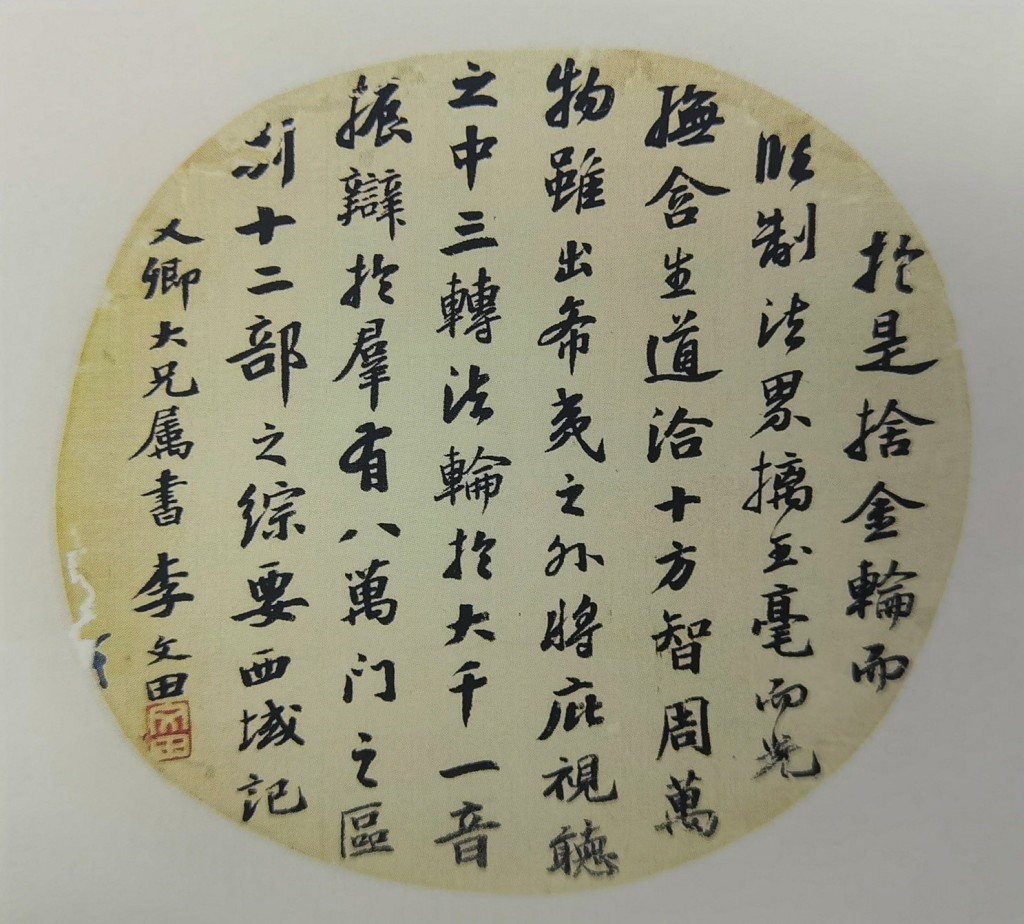 於是捨金輪而
臨制法界摛玉毫而光
撫含生道洽十方智周萬
物雖出希夷之外將庇視聽
之中三轉法輪於大千一音
振辯於羣有八萬门之區
別十二部之綜要西域記
乂卿大兄属書 李文田